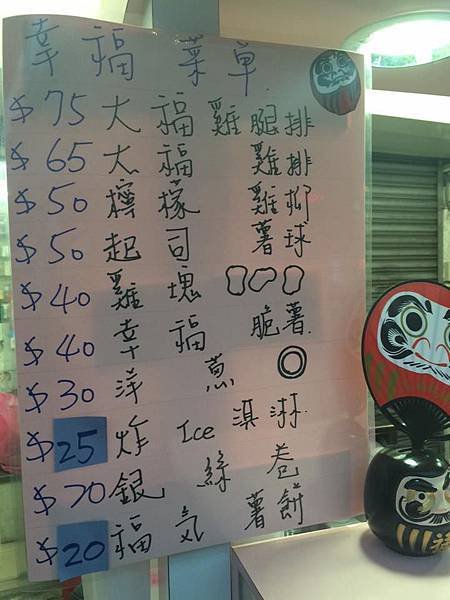 幸福菜單
$75 大福雞腿排
$65 大福雞排
$50 檸檬雞柳
$50 起司薯球
$40 雞塊
$40 幸福脆薯
$30 洋蔥◎
$25 炸Ice淇淋
$70 銀絲卷
$20 福氣薯餅
福